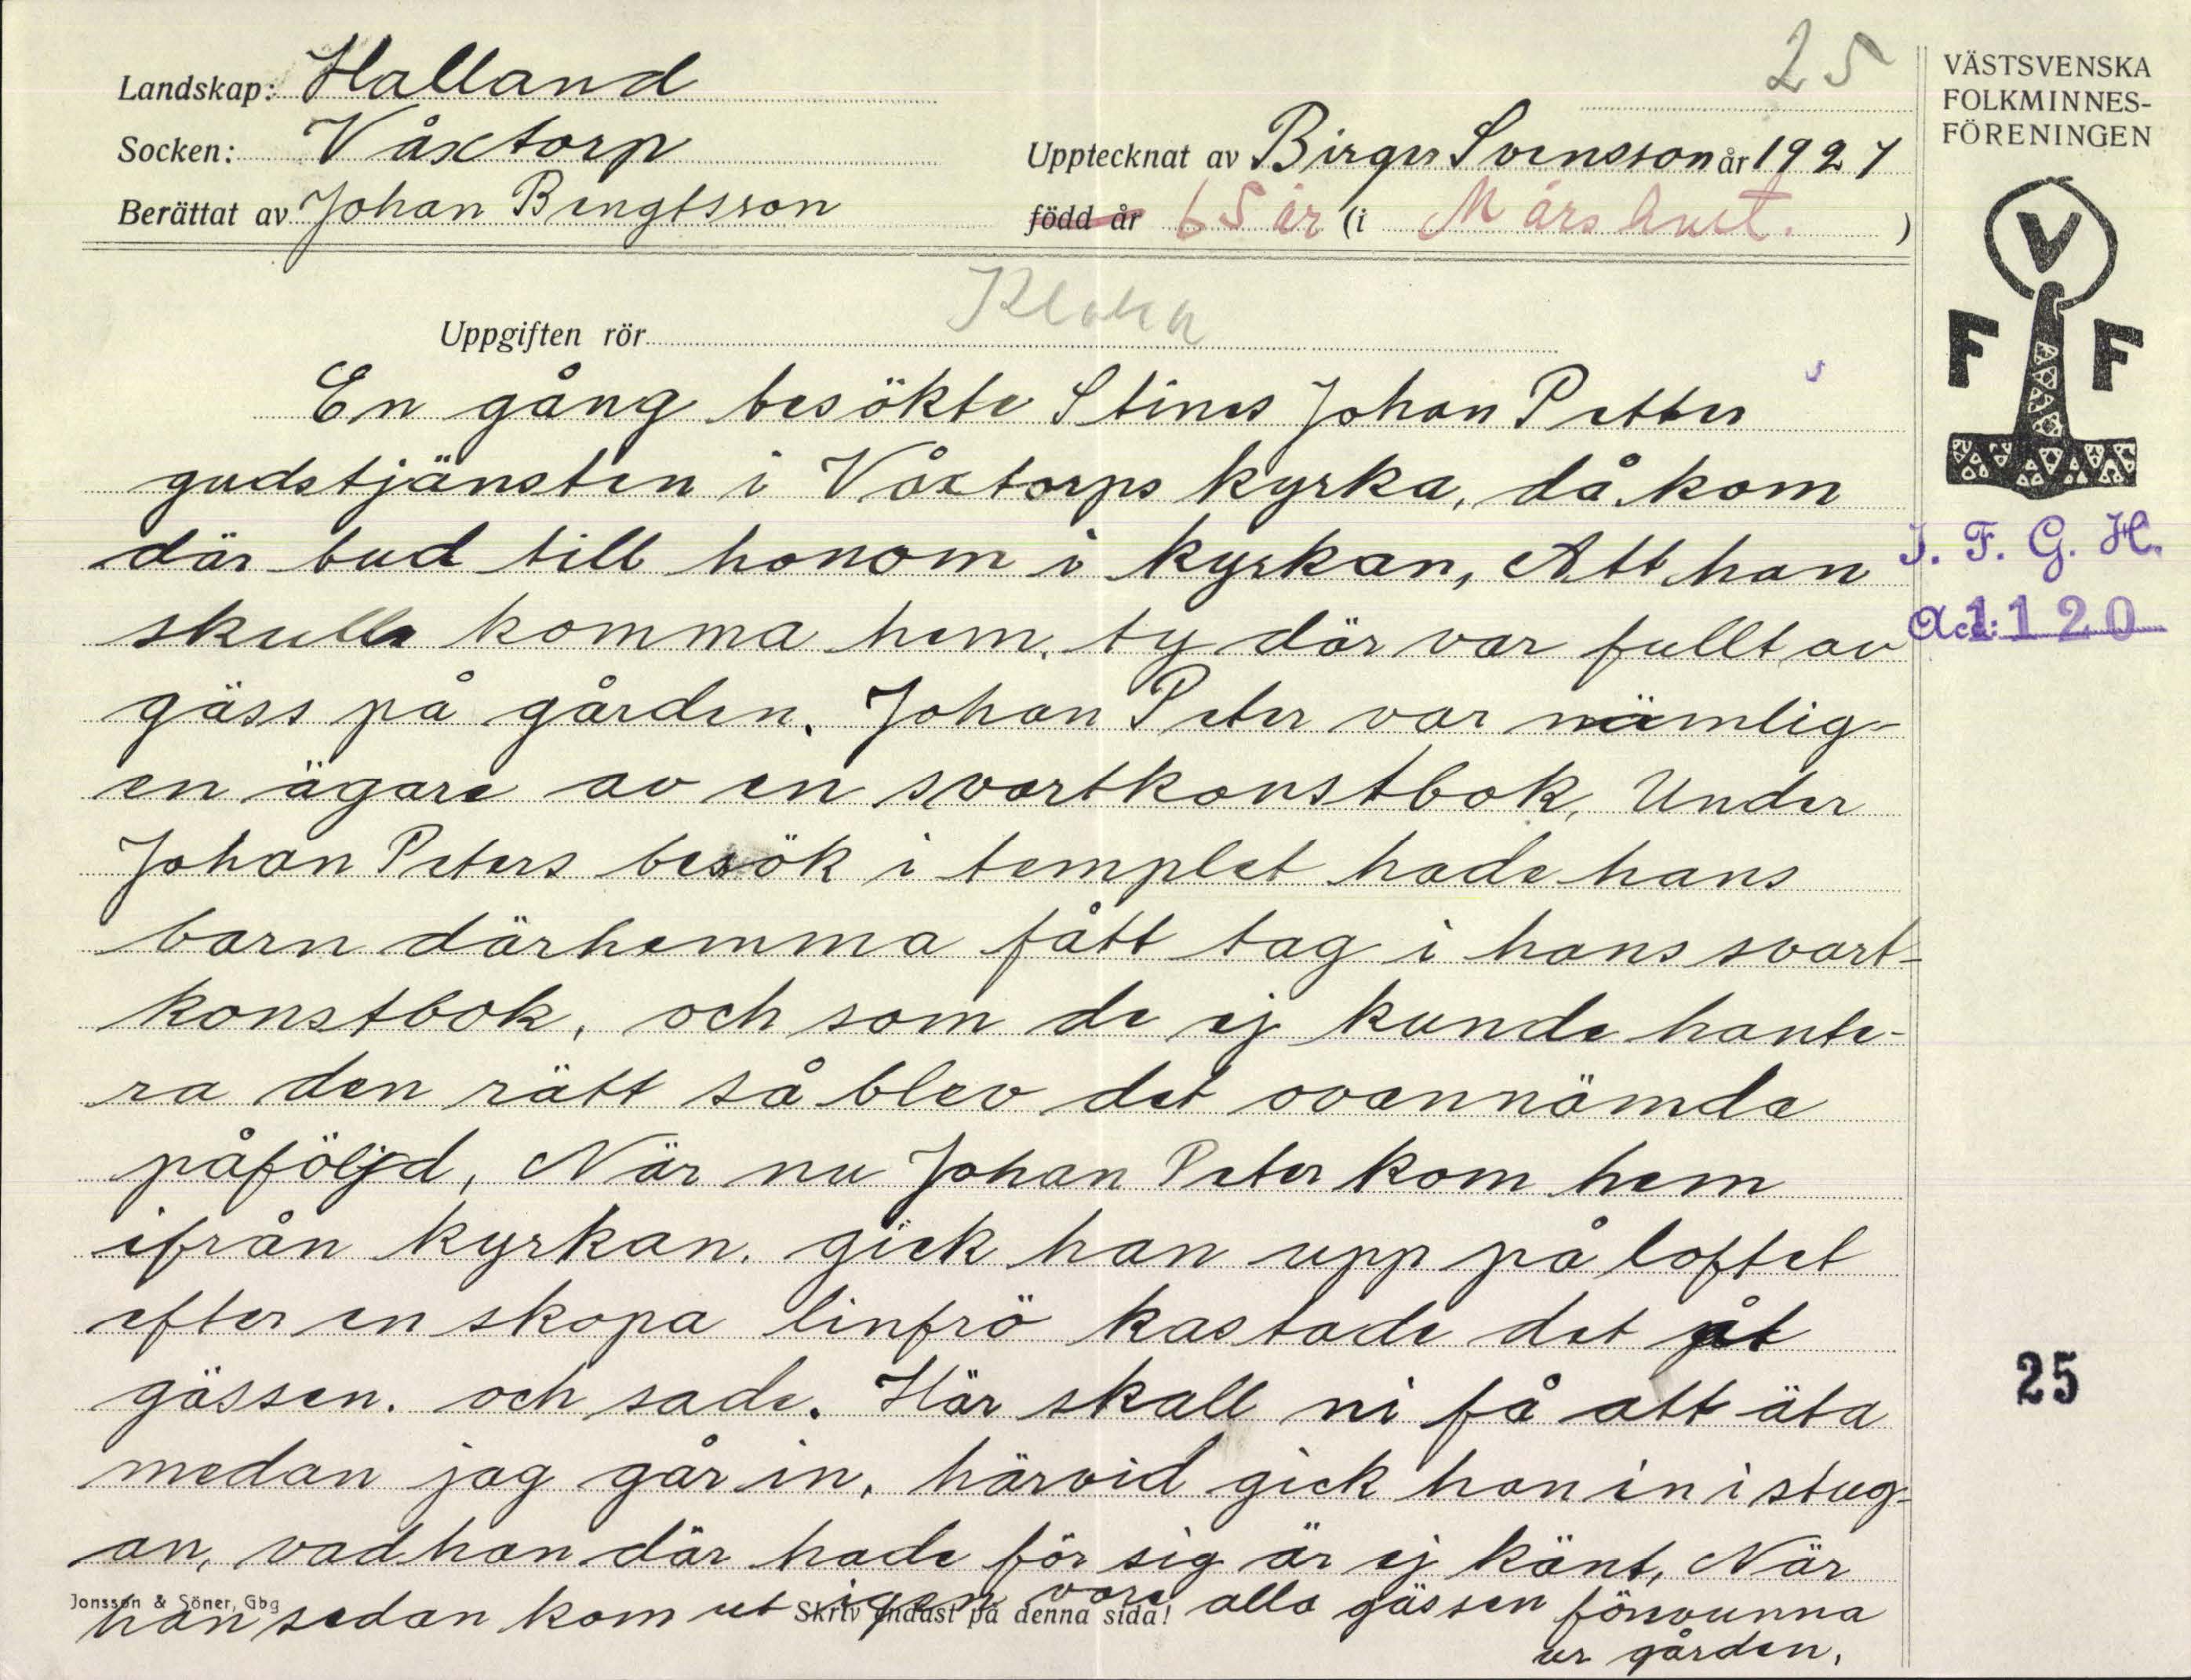 25
Landskap: Halland
Socken: Våxtorp
Upptecknat av Birger Svensson år 1927
Berättat av Johan Bengtsson
född år 65 år (i Mårshult.)
VÄSTSVENSKA
FOLKMINNES-
FÖRENINGEN
V
F F
I. F. G. H.
Acc: 1120
Uppgiften rör Kloka
En gång besökte Stines Johan Petter
gudstjänsten i Våxtorps kyrka, då kom
där bud till honom i kyrkan, Att han
skulle komma hem. ty där var fullt av
gäss på gården. Johan Peter var nämlig-
en ägare av en svartkonstbok, Under
Johan Peters besök i templet hade hans
barn därhemma fått tag i hans svart-
konstbok, och som de ej kunde hante-
ra den rätt så blev det ovannämda
påföljd, När nu Johan Peter kom hem
ifrån kyrkan. gick han upp på loftet
efter en skopa linfrö kastade det åt
gässen. och sade. Här skall ni få att äta
medan jag går in, härvid gick han in i stug-
an, vad han där hade för sig är ej känt, När
han sedan kom ut igen vore alla gässen försvunna
ur gården.
Jonsson & Söner, Gbg
Skriv endast på denna sida!
25